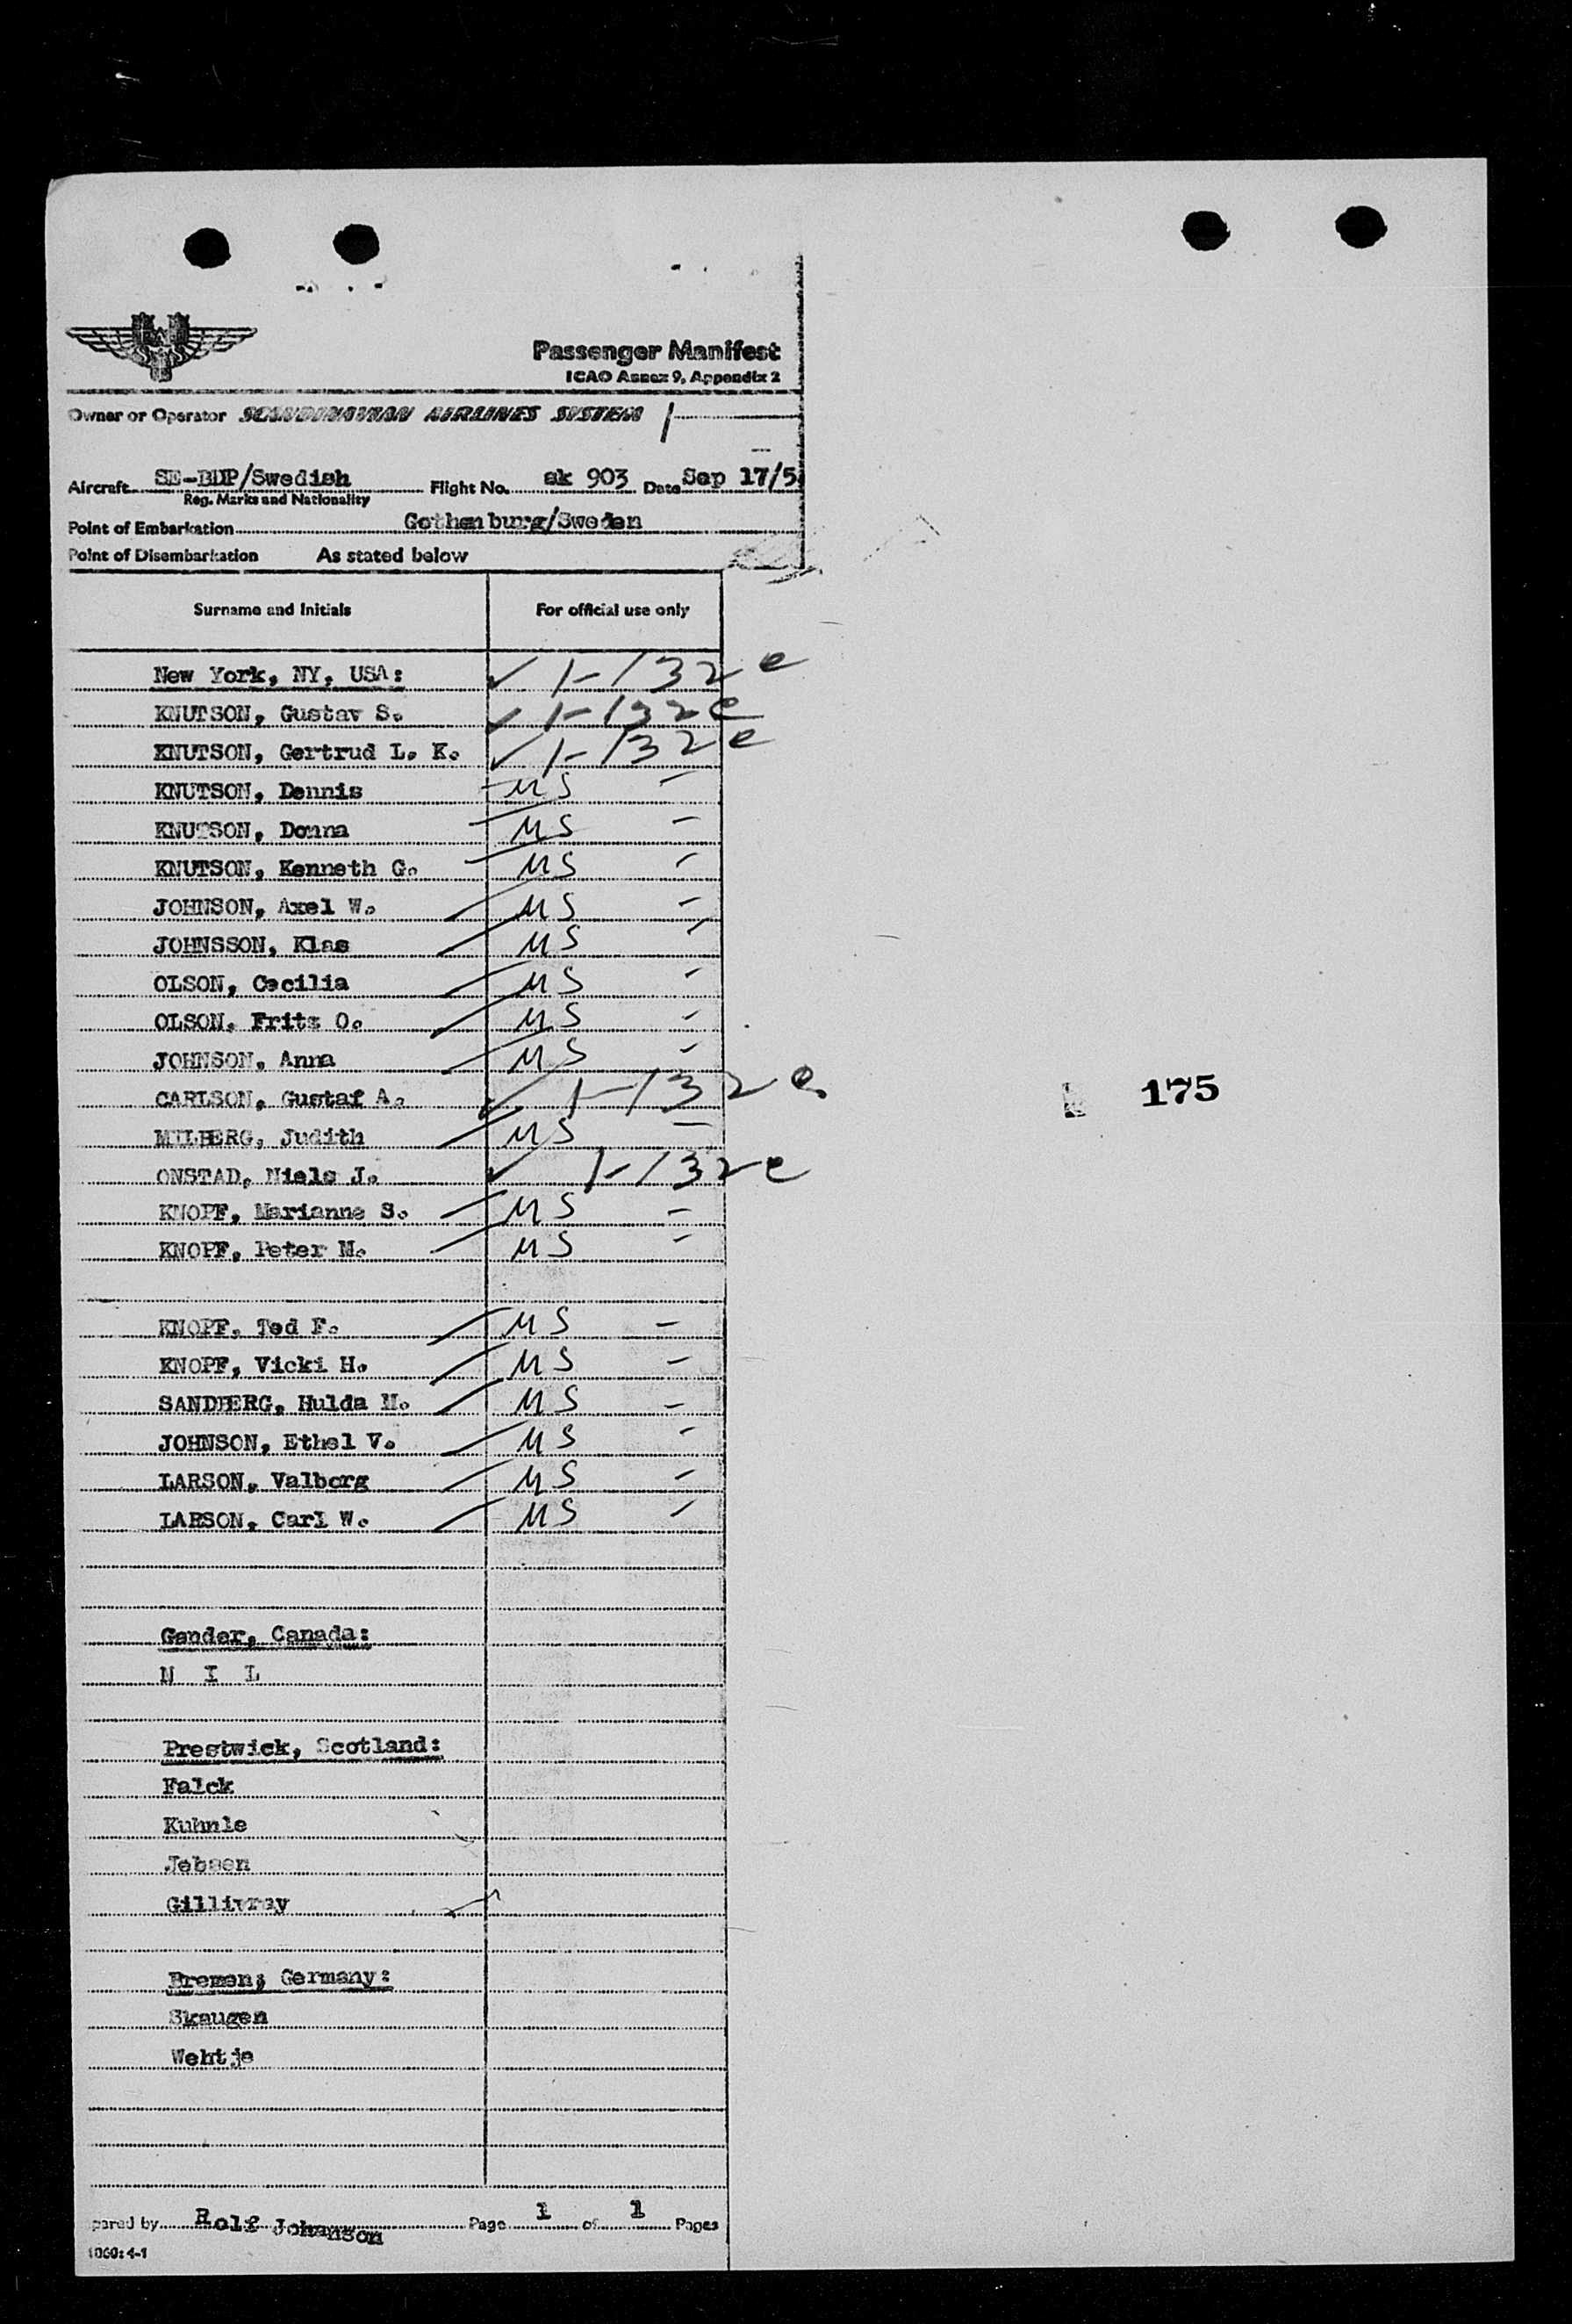 Passenger Manifest
ICAO Annex 9, Appendix 2
Owner or Operator SCANDINAVIAN AIRLINES SYSTEM
Aircraft SE-BDP/Swedish Flight No. sk 903 Date Sep 17/5
Reg. Marks and Nationality
Point of Embarkation Gothenburg/Sweden
Point of Disembarkation As stated below
Surname and Initials For official use only
New York, NY, USA: ✓ 1-132e
KNUTSON, Gustav S. ✓ 1-132e
KNUTSON, Gertrud L. K. ✓ 1-132e
KNUTSON, Dennis US -
KNUTSON, Donna US -
KNUTSON, Kenneth G. US -
JOHNSON, Axel W. US -
JOHNSSON, Klas US -
OLSON, Cecilia US -
OLSON, Fritz O. US -
JOHNSON, Anna US -
CARLSON, Gustaf A. ✓ 1-132e
175
MILBERG, Judith US -
ONSTAD, Niels J. ✓ 1-132e
KNOPF, Marianne S. US -
KNOPF, Peter M. US -
KNOPF, Ted F. US -
KNOPF, Vicki H. US -
SANDBERG, Hulda M. US -
JOHNSON, Ethel V. US -
LARSON, Valborg US -
LARSON, Carl W. US -
Gander, Canada:
N I L
Prestwick, Scotland:
Falck
Kuhnle
Jebsen
Gillivray
Bremen; Germany:
Skaugen
Wehtje
pared by Rolf Johanson Page 1 of 1 Pages
1060:4-1